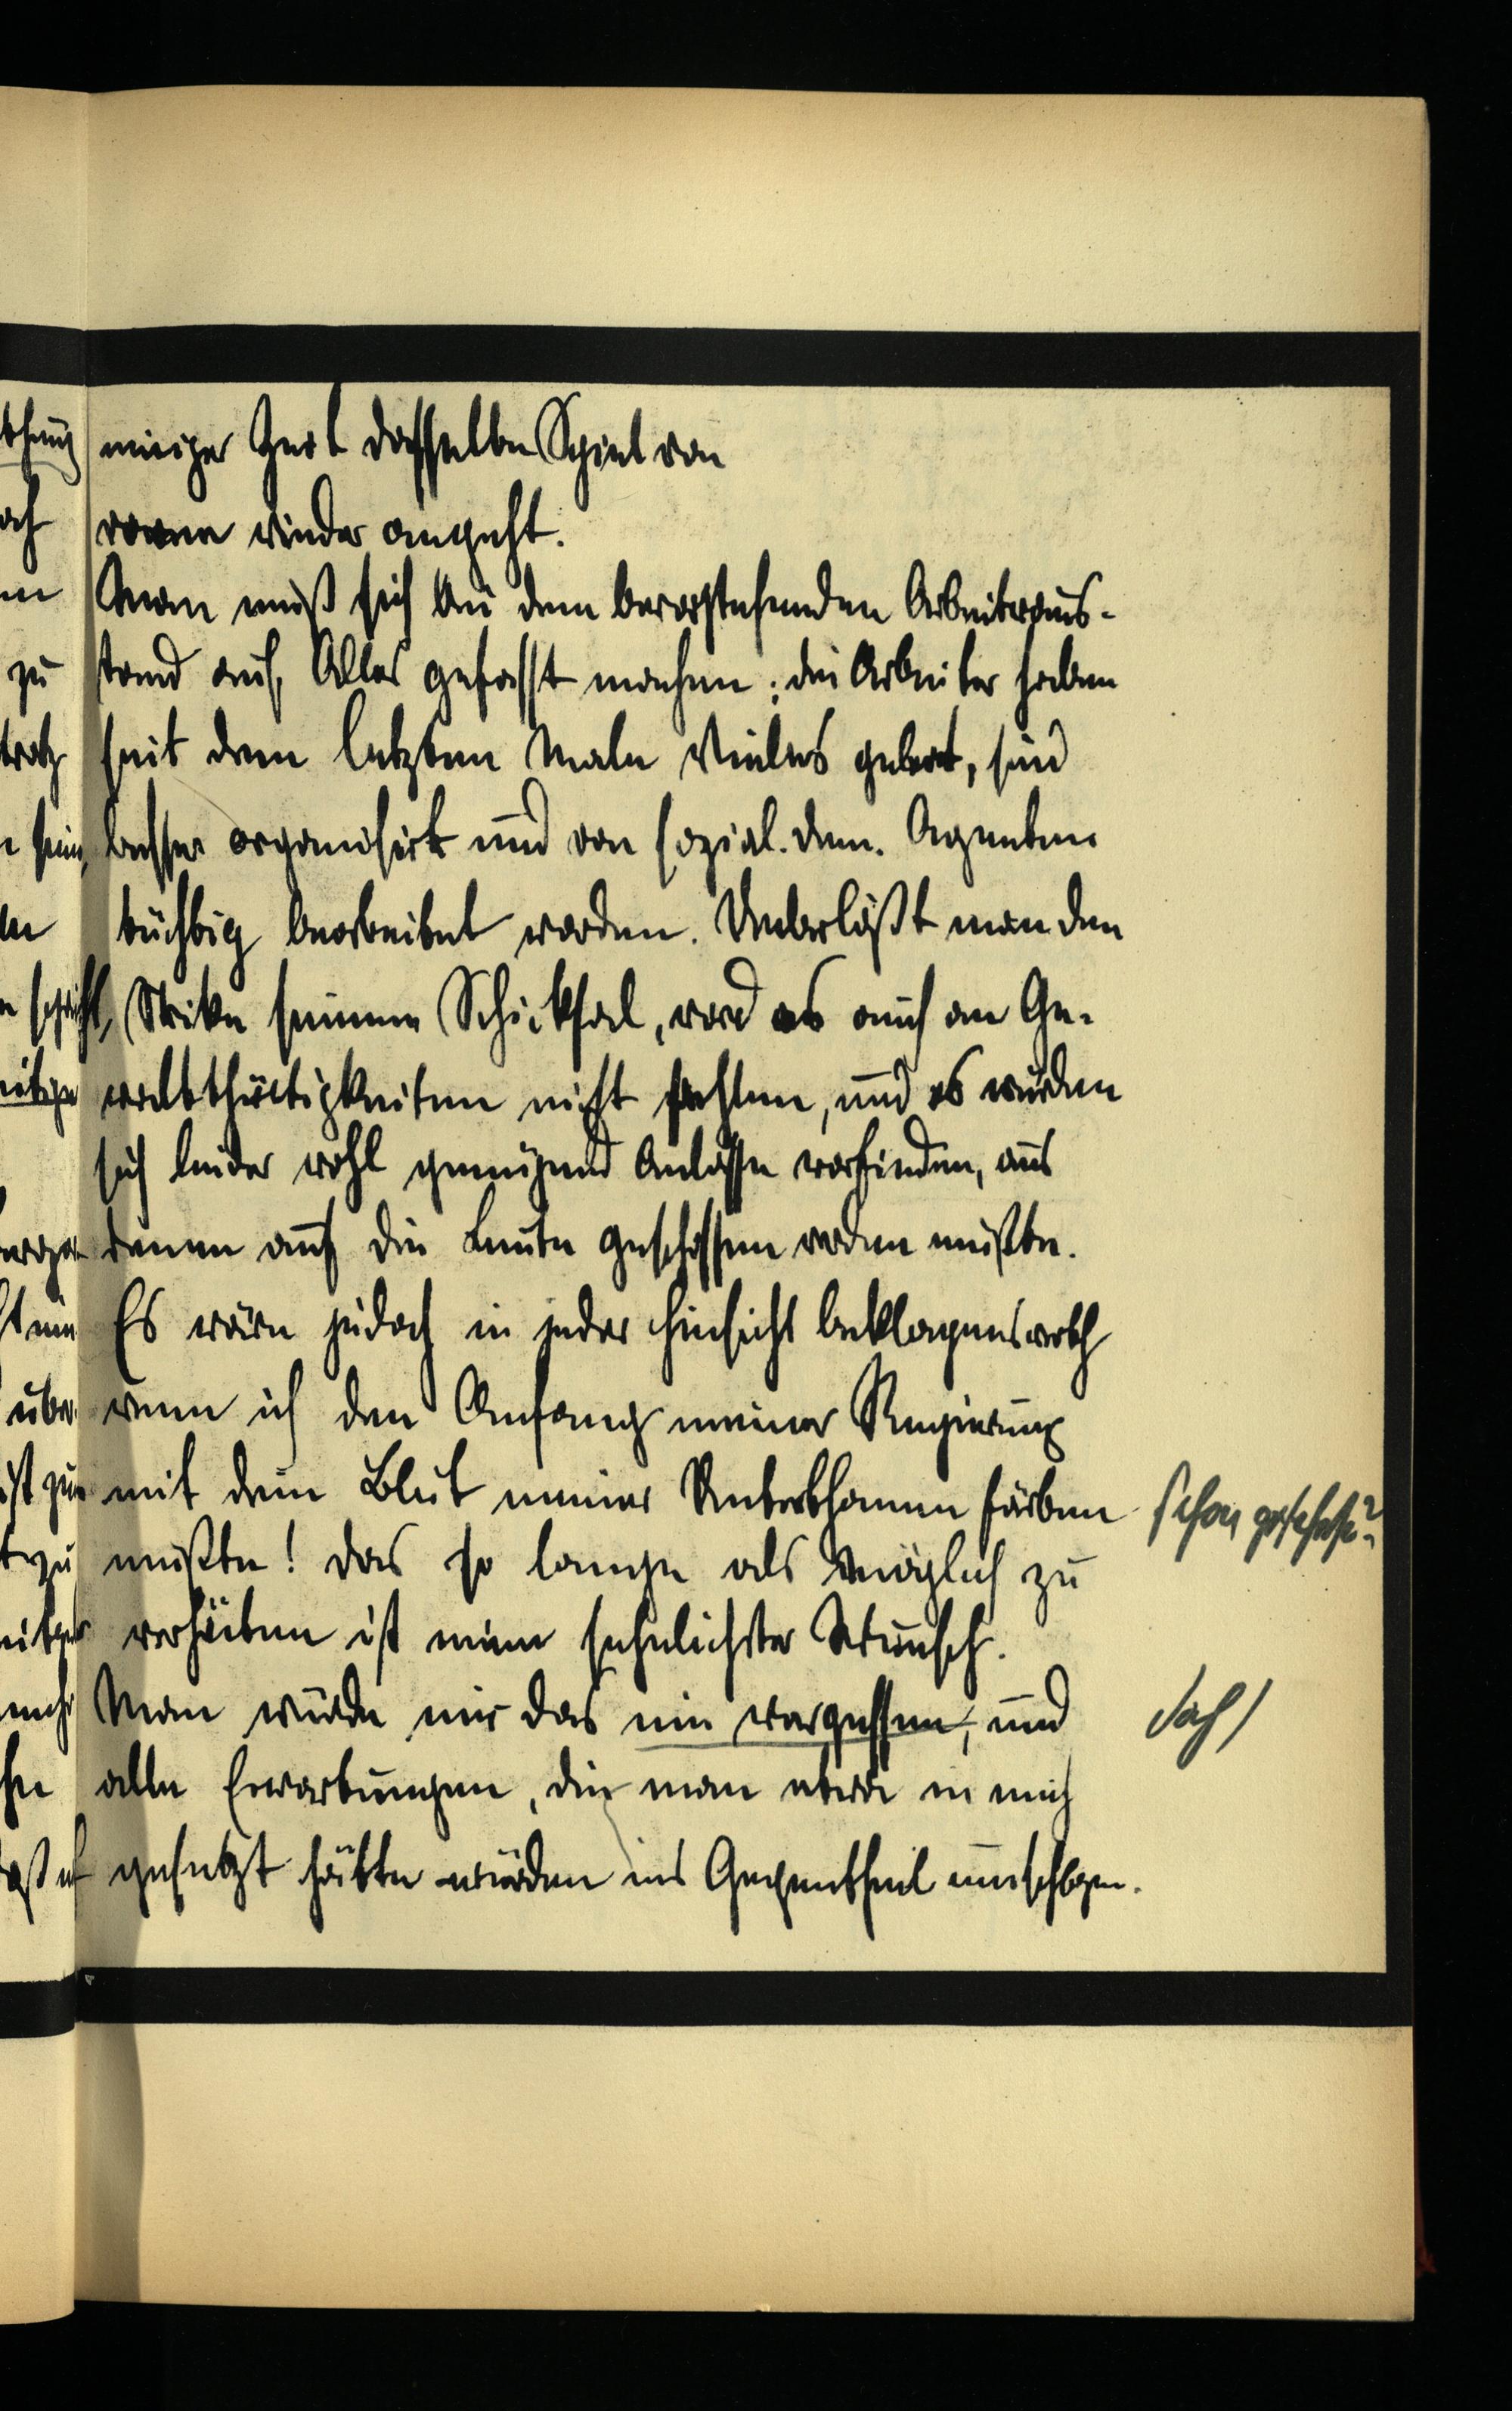 einiger Zeit dasselbe Spiel von
vorne wieder angeht.
Man muß sich bei dem bevorstehenden Arbeiteraus-
stand auf Alles gefasst machen; die Arbeiter haben
seit dem letzten Male Vieles gelernt, sind
besser organisirt und von sozial. dem. Agenten
tüchtig bearbeitet worden. Ueberläßt man den
Strike seinem Schicksal, wird es auch an Ge-
waltthätigkeiten nicht fehlen, und es würden
sich leider wohl genügend Anlässe vorfinden, aus
denen auf die Leute geschossen werden müßte.
Es wäre jedoch in jeder Hinsicht beklagenswerth
wenn ich den Anfang meiner Regierung
mit dem Blut meiner Unterthanen färben
müßte! Das so lange als möglich zu
verhüten ist mein sehnlichster Wunsch.
Man würde mir das nie vergessen, und
alle Erwartungen, die man etwa in mich
gesetzt hätte würden ins Gegentheil umschlagen.
schon geschehen?